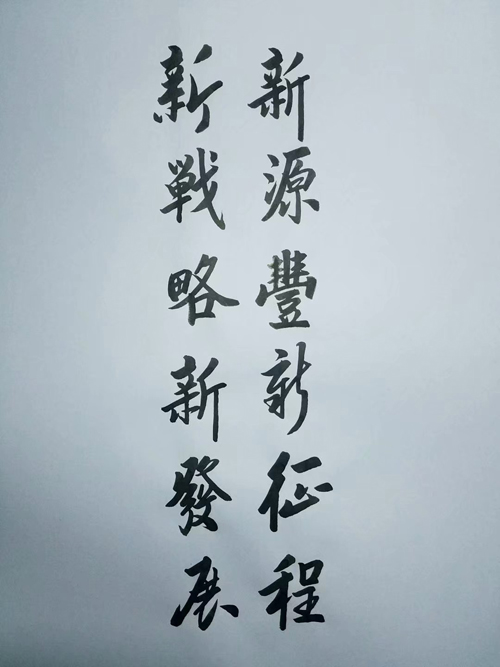 新源豐新征程
新戦略新發展